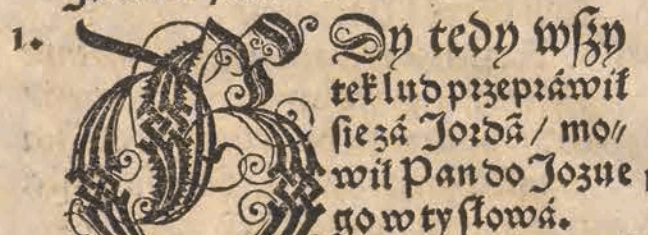 1. GDy tedy wſzy
tek lud przepráwił
ſie zá Jordã / mo⸗
wił Pan do Jozue
go w ty ſłowá.